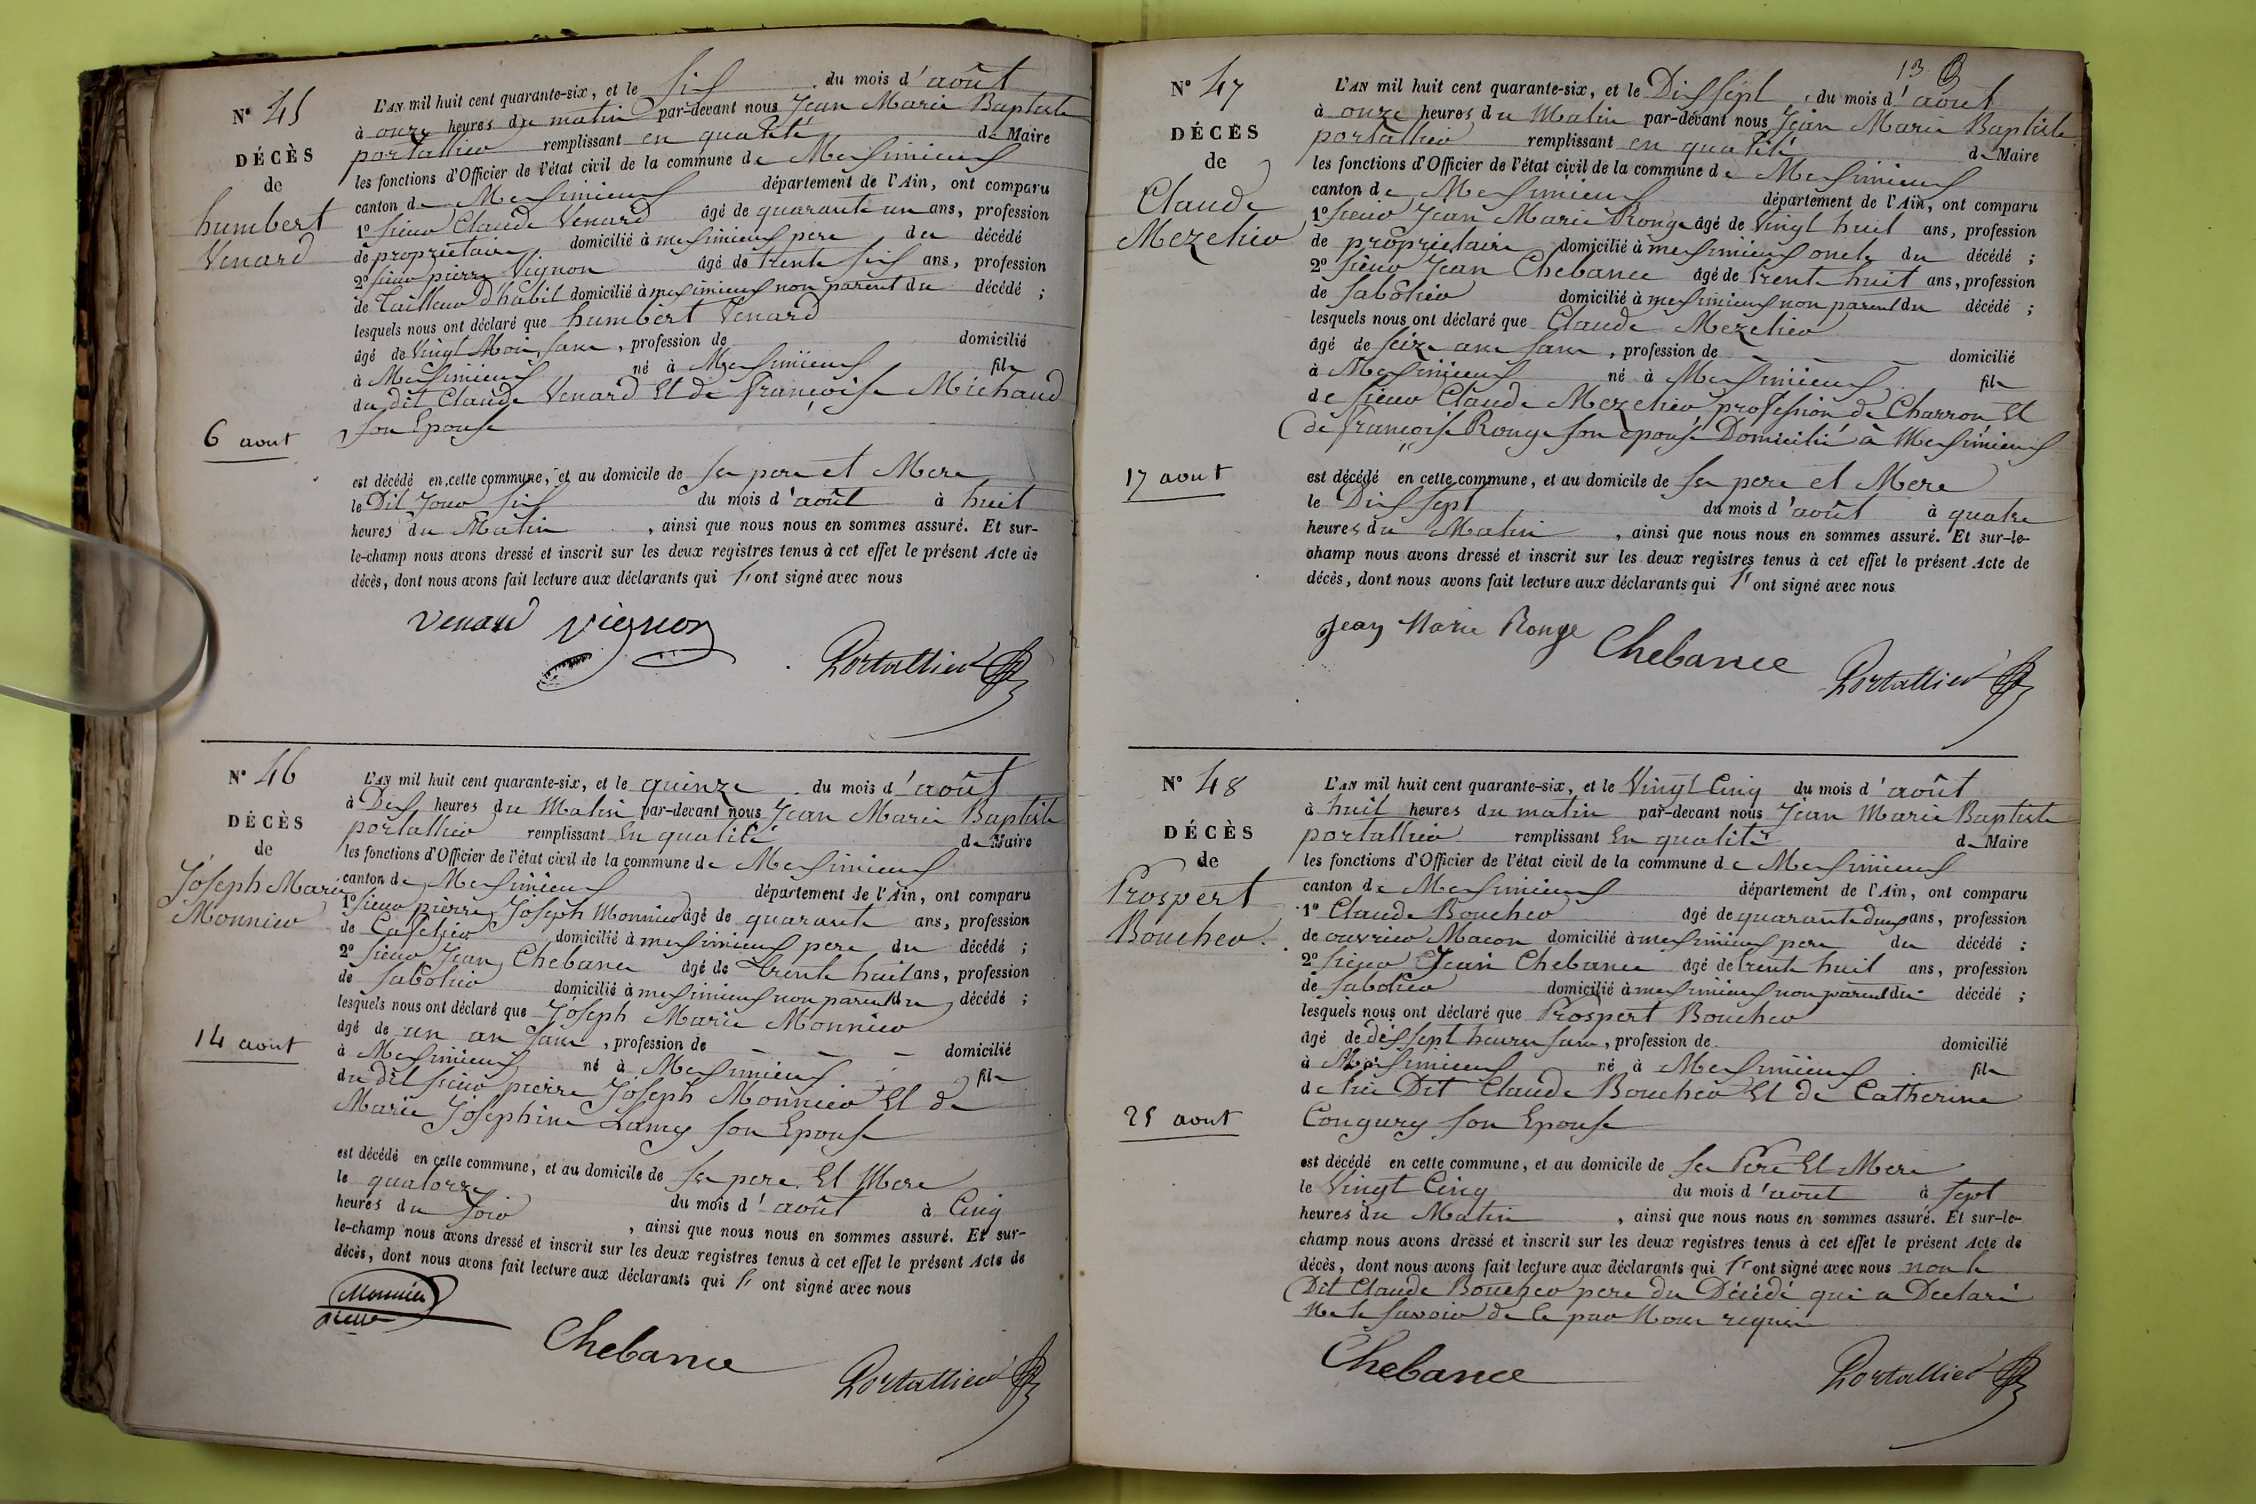 N° 45
DÉCÈS
de
humbert
Venard
6 aout
L'AN mil huit cent quarante-six, et le six du mois d'août
à onze heures du matin par-devant nous Jean Marie Baptiste
portallier remplissant en qualité de Maire
les fonctions d'Officier de l'état civil de la commune de Meximieux
canton de Meximieux département de l'Ain, ont comparu
1° sieur Claude Venard âgé de quarante un ans, profession
de propriétaire domicilié à meximieux pere du décédé
2° sieur pierre Vignon âgé de trente six ans, profession
de tailleur d'habit domicilié à meximieux non parent du décédé ;
lesquels nous ont déclaré que humbert Venard
âgé de Vingt Mois sans, profession de domicilié
à Meximieux né à Meximieux fils
du dit Claude Venard Et de françoise Michaud
son Epouse
est décédé en cette commune, et au domicile de ses pere et Mere
le Dit Jour six du mois d'août à huit
heures du Matin, ainsi que nous nous en sommes assuré. Et sur-
le-champ nous avons dressé et inscrit sur les deux registres tenus à cet effet le présent Acte de
décès, dont nous avons fait lecture aux déclarants qui l'ont signé avec nous
Venard Vignon
Portallier
N° 46
DÉCÈS
de
Joseph Marie
Monnier
14 aout
L'AN mil huit cent quarante-six, et le quinze du mois d'août
à Dix heures du Matin par-devant nous Jean Marie Baptiste
portallier remplissant En qualité de Maire
les fonctions d'Officier de l'état civil de la commune de Meximieux
canton de Meximieux département de l'Ain, ont comparu
1° sieur pierre Joseph Monnier âgé de quarante ans, profession
de Cafetier domicilié à meximieux pere du décédé ;
2° sieur Jean Chebance âgé de trente huit ans, profession
de sabotier domicilié à meximieux non parent du décédé ;
lesquels nous ont déclaré que Joseph Marie Monnier
âgé de un an sans, profession de - - - domicilié
à Meximieux né à Meximieux fils
du dit sieur pierre Joseph Monnier Et de
Marie Joséphine Lamy son Epouse
est décédé en cette commune, et au domicile de ses pere Et Mere
le quatorze du mois d'août à Cinq
heures du soir, ainsi que nous nous en sommes assuré. Et sur-
le-champ nous avons dressé et inscrit sur les deux registres tenus à cet effet le présent Acte de
décès, dont nous avons fait lecture aux déclarants qui l'ont signé avec nous
Monnier
Chebance
Portallier
13
N° 47
DÉCÈS
de
Claude
Mezelier
17 aout
L'AN mil huit cent quarante-six, et le Dix sept, du mois d'août
à onze heures du Matin par-devant nous Jean Marie Baptiste
portallier remplissant en qualité de Maire
les fonctions d'Officier de l'état civil de la commune de Meximieux
canton de Meximieux département de l'Ain, ont comparu
1° sieur Jean Marie Ronge âgé de Vingt huit ans, profession
de propriétaire domicilié à meximieux oncle du décédé ;
2° sieur Jean Chebance âgé de trente huit ans, profession
de sabotier domicilié à meximieux non parent du décédé ;
lesquels nous ont déclaré que Claude Mezelier
âgé de seize ans sans, profession de - - - domicilié
à Meximieux né à Meximieux fils
de sieur Claude Mezelier profession de Charron Et
de françoise Ronge son epouse Domicilié à Meximieux
est décédé en cette commune, et au domicile de ses pere et Mere
le Dix sept du mois d'août à quatre
heures du Matin, ainsi que nous nous en sommes assuré. Et sur-le-
champ nous avons dressé et inscrit sur les deux registres tenus à cet effet le présent Acte de
décès, dont nous avons fait lecture aux déclarants qui l'ont signé avec nous
Jean Marie Ronge Chebance
Portallier
N° 48
DÉCÈS
de
Prospert
Boucher
25 aout
L'AN mil huit cent quarante-six, et le Vingt Cinq du mois d'août
à huit heures du matin par-devant nous Jean Marie Baptiste
portallier remplissant En qualité de Maire
les fonctions d'Officier de l'état civil de la commune de Meximieux
canton de Meximieux département de l'Ain, ont comparu
1° Claude Boucher âgé de quarante deux ans, profession
de ouvrier Macon domicilié à meximieux pere du décédé ;
2° sieur Jean Chebance âgé de trente huit ans, profession
de sabotier domicilié à meximieux non parent du décédé ;
lesquels nous ont déclaré que Prospert Boucher
âgé de dix sept heures sans, profession de domicilié
à Meximieux né à Meximieux fils
de lui Dit Claude Boucher Et de Catherine
Congury son Epouse
est décédé en cette commune, et au domicile de ses Pere Et Mere
le Vingt Cinq du mois d'août à sept
heures du Matin, ainsi que nous nous en sommes assuré. Et sur-le-
champ nous avons dressé et inscrit sur les deux registres tenus à cet effet le présent Acte de
décès, dont nous avons fait lecture aux déclarants qui l'ont signé avec nous non le
Dit Claude Boucher pere du Décédé qui a Declaré
Ne le savoir de ce par Nous requis
Chebance
Portallier